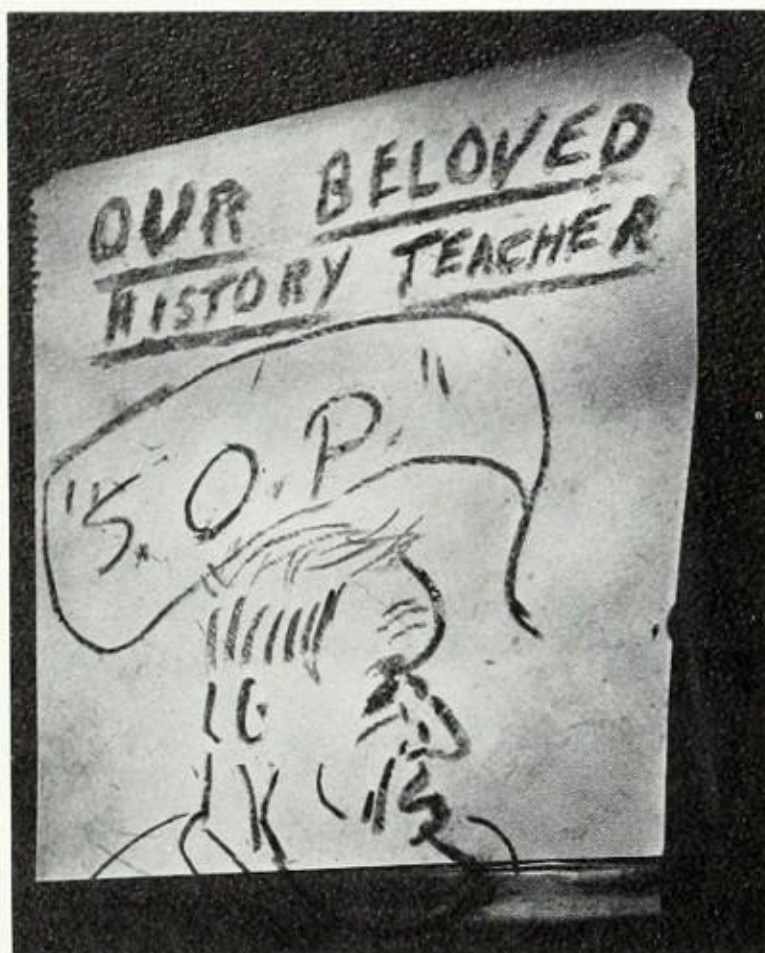 OUR BELOVED
HISTORY TEACHER
"S.O.P."